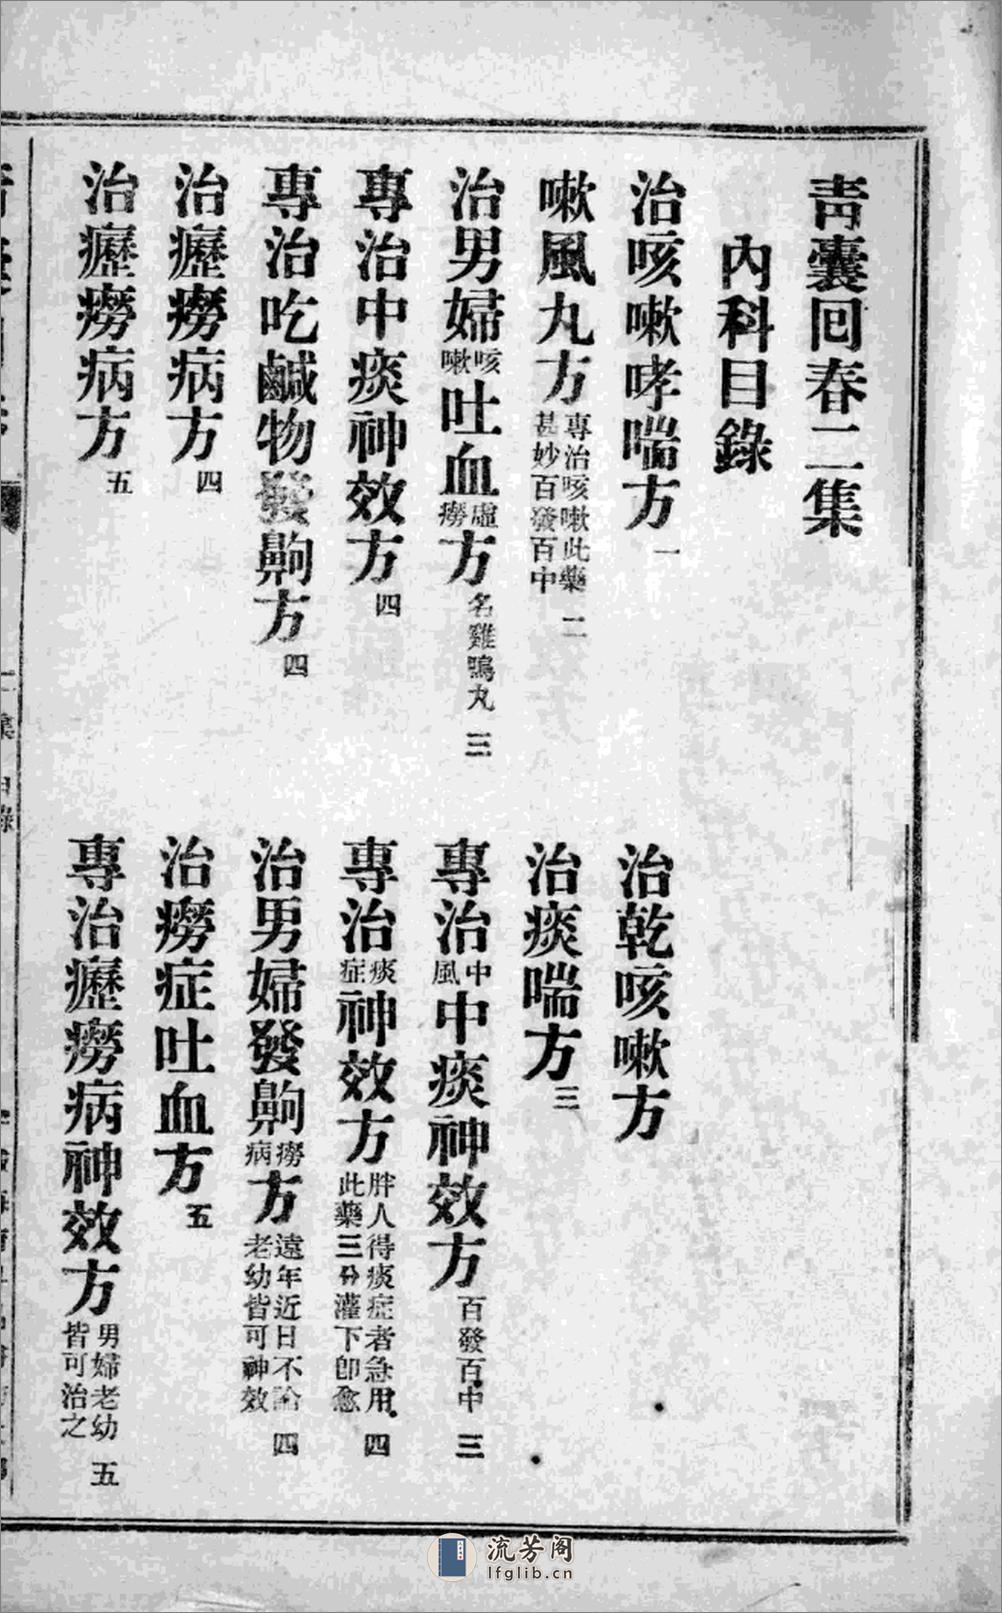 青囊回春二集
內科目錄
治咳嗽哮喘方 一
治乾咳嗽方
嗽風丸方 專治咳嗽此藥甚妙百發百中 二
治痰喘方 三
治男婦咳嗽吐血虛癆方 名雞鳴丸 三
專治中風中痰神效方 百發百中 三
專治中痰神效方 四
專治痰症神效方 胖人得痰症者急用此藥三分灌下卽愈 四
專治吃鹹物發齁方 四
治男婦發齁癆病方 遠年近日不論老幼皆可神效 四
治癧癆病方 四
治癆症吐血方 五
治癧癆病方 五
專治癧癆病神效方 男婦老幼皆可治之 五
流芳阁
lfglib.cn